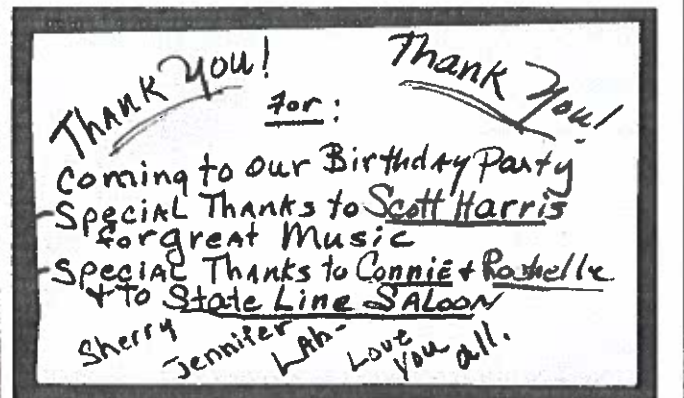 Thank You! Thank You!
For:
Coming to our Birthday Party
- Special Thanks to Scott Harris
for great Music
- Special Thanks to Connie + Roshelle
+ to State Line Saloon
Sherry Jennifer LAh- Love you all.